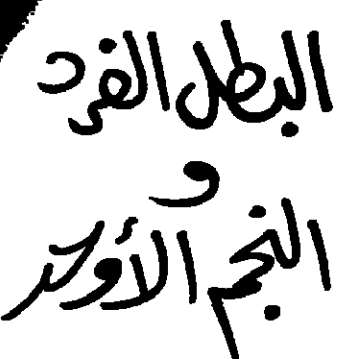 البطل الفرد
و
النجم الأوحد